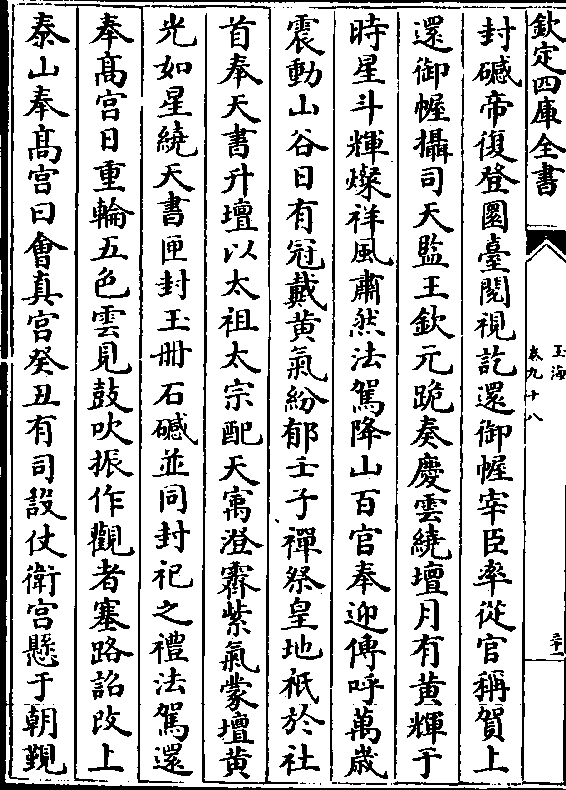 欽定四庫全書
玉海
卷九十八
二十
封䃭帝復登圜臺閱視訖還御幄宰臣率從官稱賀上
還御幄攝司天監王欽元跪奏慶雲繞壇月有黃輝于
時星斗輝燦祥風肅然法駕降山百官奉迎傳呼萬歲
震動山谷日有冠戴黃氣紛郁壬子禪祭皇地祇於社
首奉天書升壇以太祖太宗配天㝢澄霽紫氣蒙壇黃
光如星繞天書匣封玉冊石䃭並同封祀之禮法駕還
奉髙宮日重輪五色雲見鼓吹振作觀者塞路詔改上
泰山奉髙宮曰會真宮癸丑有司設仗衛宮懸于朝覲